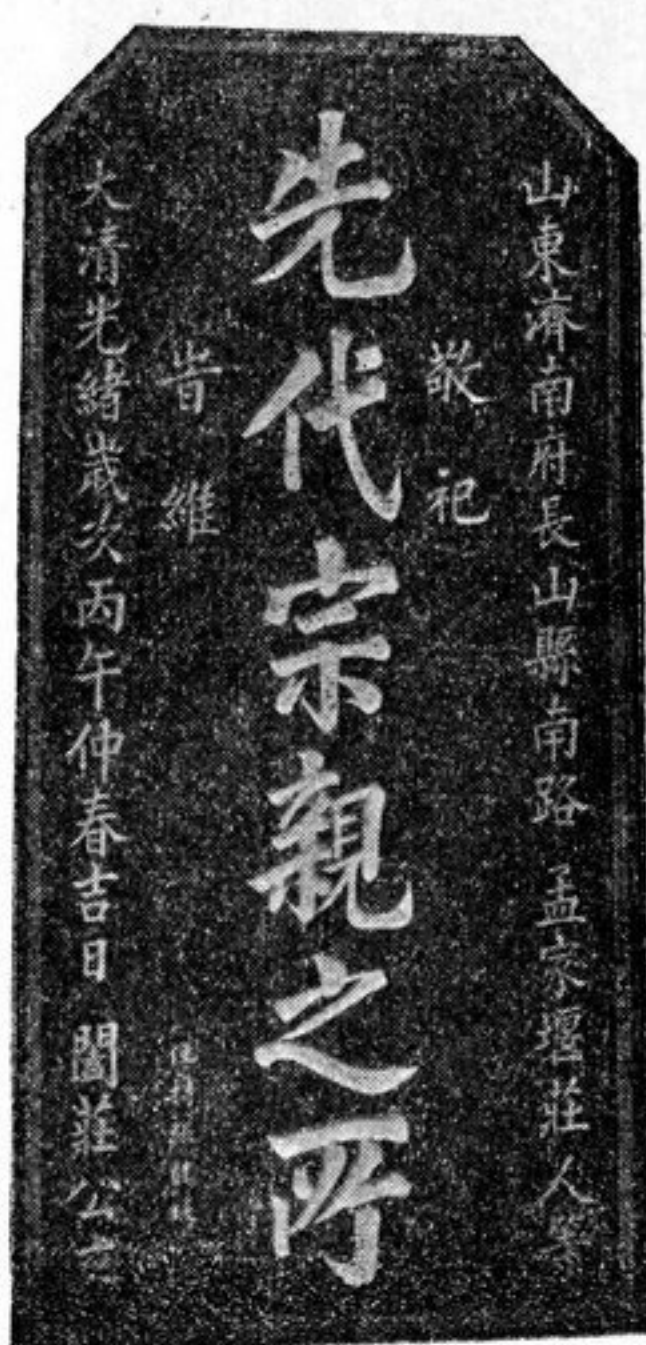 山東濟南府長山縣南路 孟家堰莊人等
敬祀
先代宗親之所
旹維
大清光緒歲次丙午仲春吉日 闔莊公立